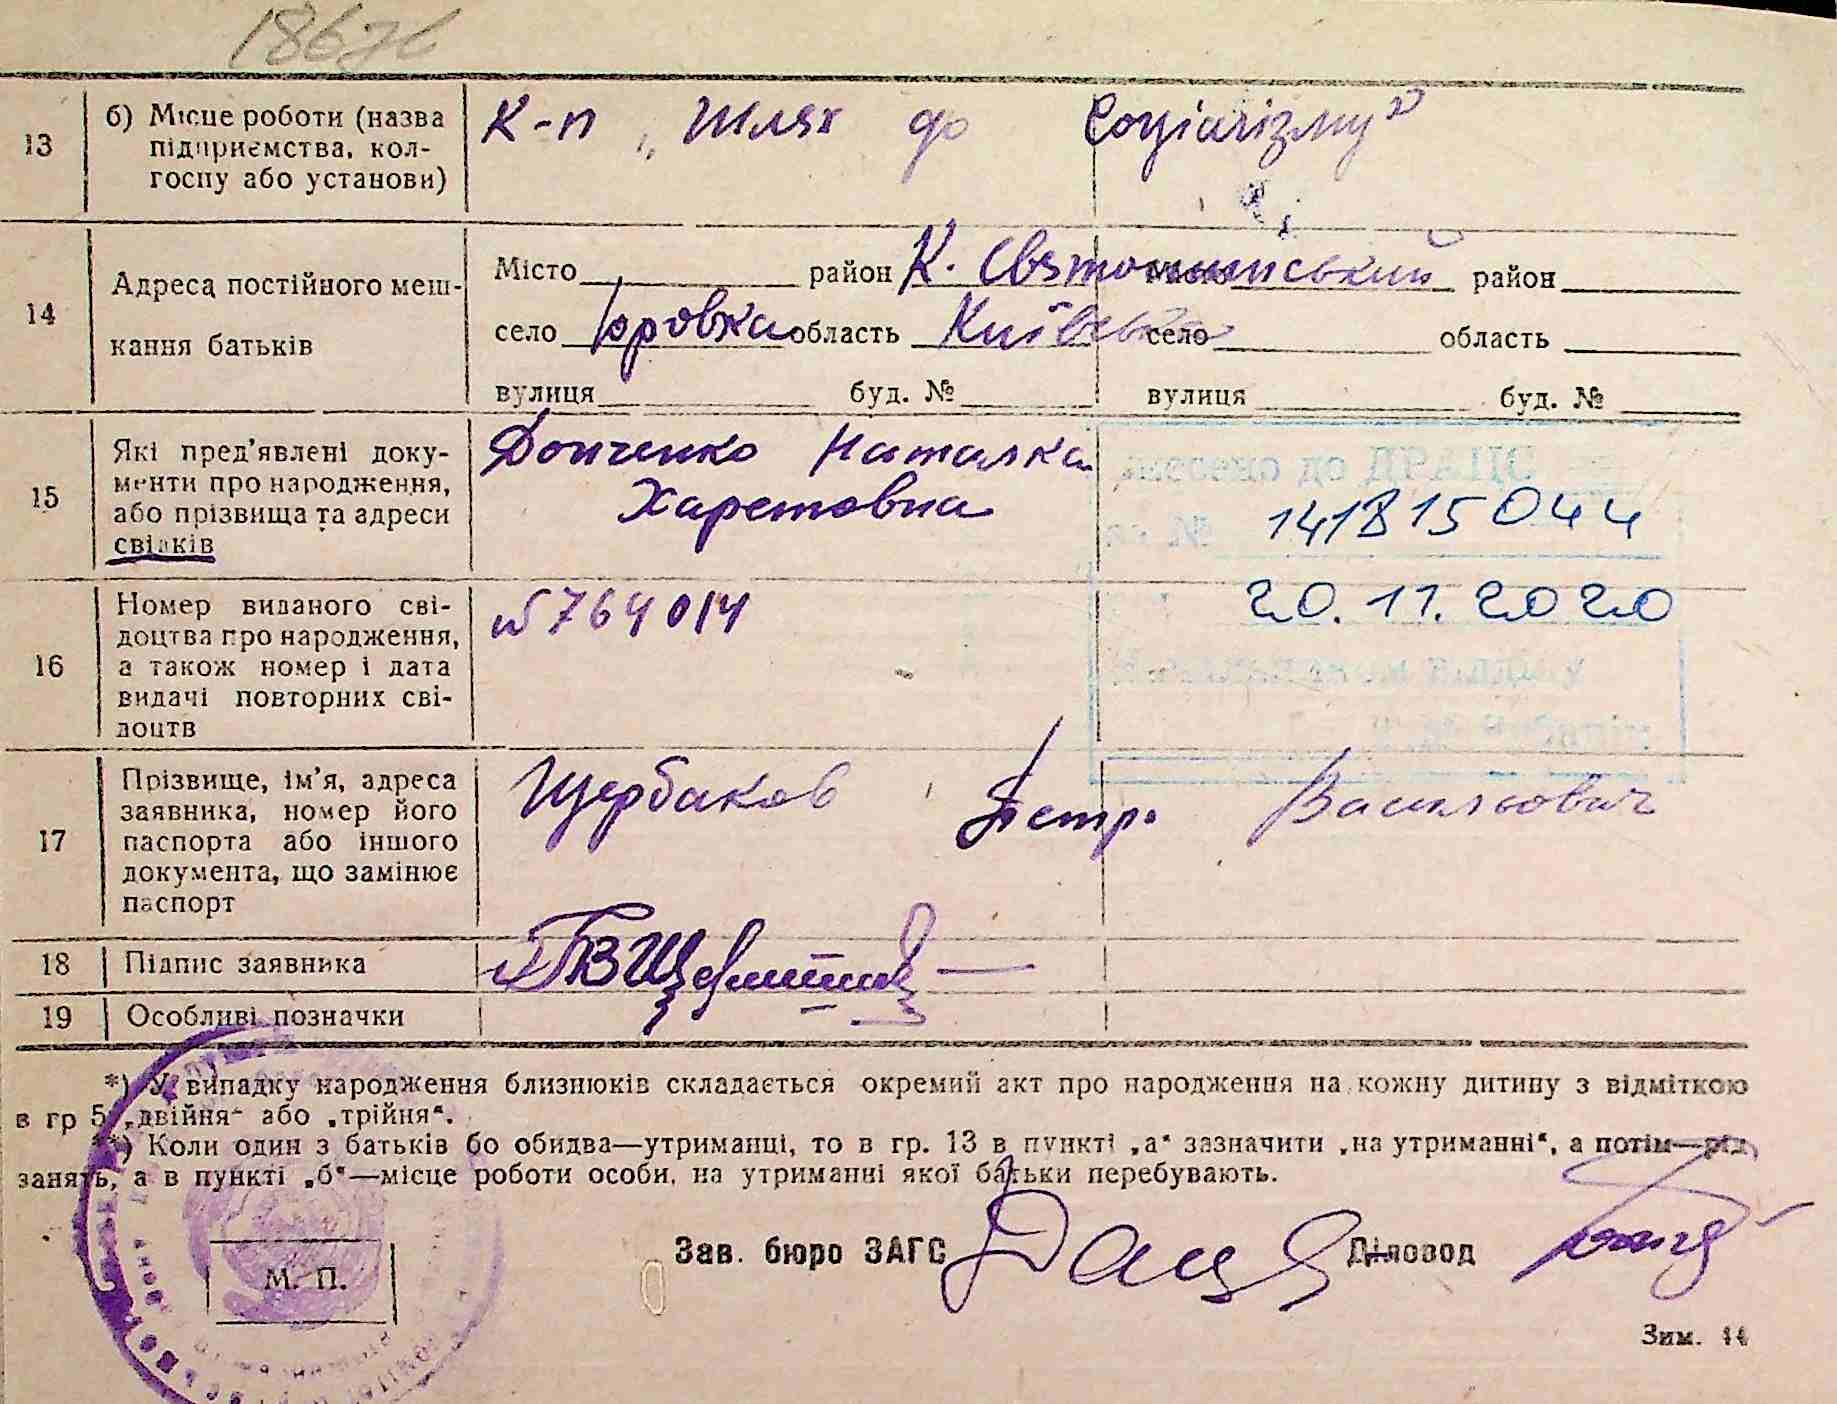 13
б) Місце роботи (назва
підприємства, кол-
госпу або установи)
К-п „Шлях до Соціалізму"
14
Адреса постійного меш-
кання батьків
Місто район К. Святошинський
село Юровка область Київська
вулиця буд. №
Місто район
село область
вулиця буд. №
15
Які пред'явлені доку-
менти про народження,
або прізвища та адреси
свідків
Донченко Наталка
Харетовна
внесено до ДРАЦС
за №
141815044
20.11.2020
16
Номер виданого сві-
доцтва про народження,
а також номер і дата
видачі повторних сві-
доцтв
№ 764014
17
Прізвище, ім'я, адреса
заявника, номер його
паспорта або іншого
документа, що замінює
паспорт
Щербаков Петр. Васильович
18
Підпис заявника
19
Особливі позначки
*) У випадку народження близнюків складається окремий акт про народження на кожну дитину з відміткою
в гр 5 „двійня“ або „трійня“.
**) Коли один з батьків бо обидва—утриманці, то в гр. 13 в пункті „а“ зазначити „на утриманні“, а потім—рід
занять, а в пункті „б“—місце роботи особи, на утриманні якої батьки перебувають.
Зав. бюро ЗАГС
Діловод
М. П.
Зим. 44